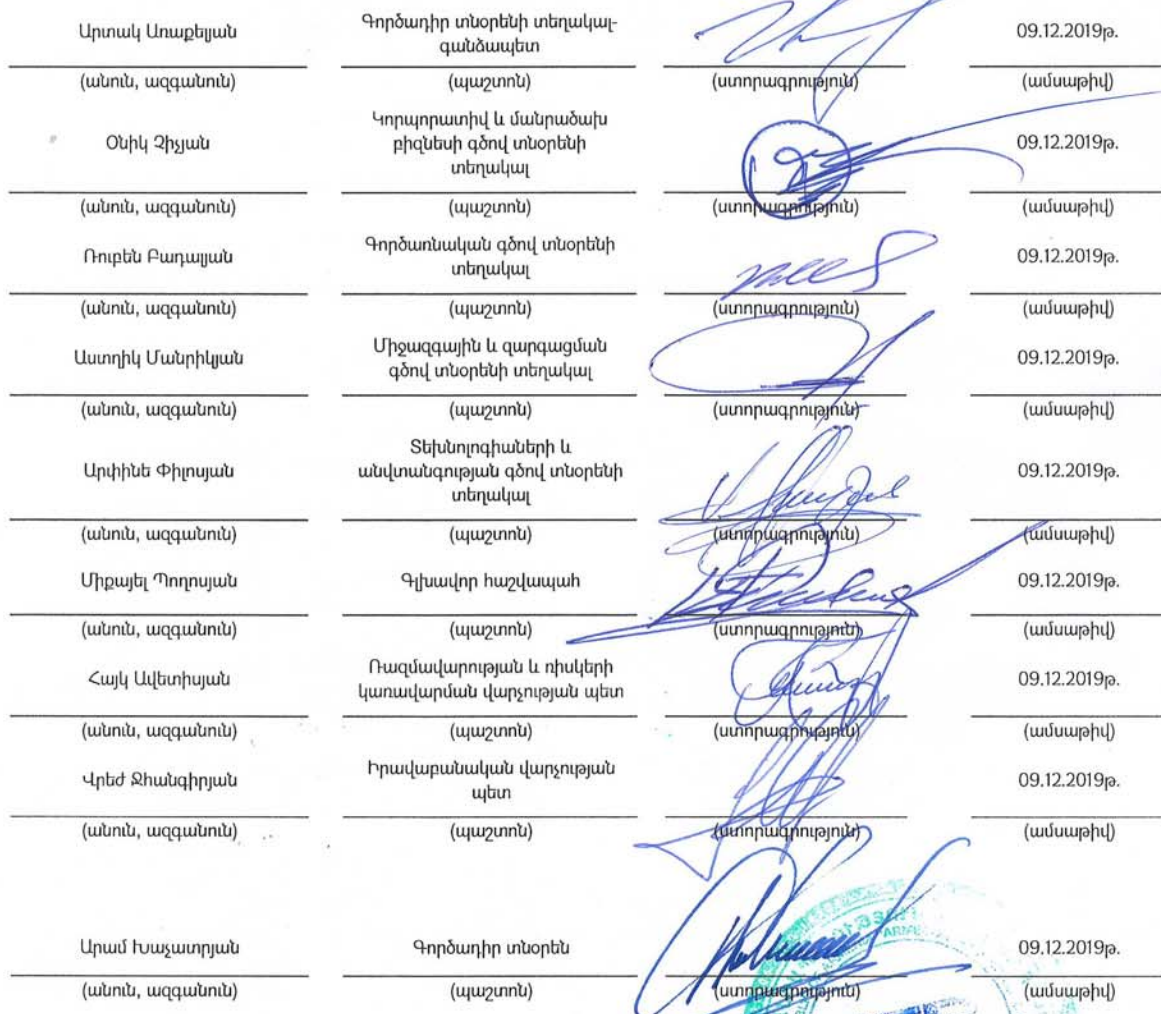 Արտակ Առաքելյան Գործադիր տնօրենի տեղակալ- 09.12.2019թ.
գանձապետ
(անուն, ազգանուն) (պաշտոն) (ստորագրություն) (ամսաթիվ)
Օնիկ Չիչյան Կորպորատիվ և մանրածախ 09.12.2019թ.
բիզնեսի գծով տնօրենի
տեղակալ
(անուն, ազգանուն) (պաշտոն) (ստորագրություն) (ամսաթիվ)
Ռուբեն Բադալյան Գործառնական գծով տնօրենի 09.12.2019թ.
տեղակալ
(անուն, ազգանուն) (պաշտոն) (ստորագրություն) (ամսաթիվ)
Աստղիկ Մանրիկյան Միջազգային և զարգացման 09.12.2019թ.
գծով տնօրենի տեղակալ
(անուն, ազգանուն) (պաշտոն) (ստորագրություն) (ամսաթիվ)
Արփինե Փիլոսյան Տեխնոլոգիաների և 09.12.2019թ.
անվտանգության գծով տնօրենի
տեղակալ
(անուն, ազգանուն) (պաշտոն) (ստորագրություն) (ամսաթիվ)
Միքայել Պողոսյան Գլխավոր հաշվապահ 09.12.2019թ.
(անուն, ազգանուն) (պաշտոն) (ստորագրություն) (ամսաթիվ)
Հայկ Ավետիսյան Ռազմավարության և ռիսկերի 09.12.2019թ.
կառավարման վարչության պետ
(անուն, ազգանուն) (պաշտոն) (ստորագրություն) (ամսաթիվ)
Վրեժ Ջհանգիրյան Իրավաբանական վարչության 09.12.2019թ.
պետ
(անուն, ազգանուն) (պաշտոն) (ստորագրություն) (ամսաթիվ)
Արամ Խաչատրյան Գործադիր տնօրեն 09.12.2019թ.
(անուն, ազգանուն) (պաշտոն) (ստորագրություն) (ամսաթիվ)